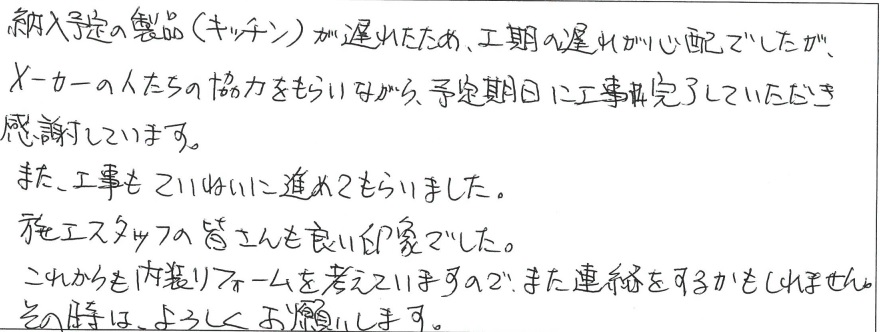 納入予定の製品(キッチン)が遅れたため、工期の遅れが心配でしたが、
メーカーの人たちの協力をもらいながら、予定期日に工事完了していただき
感謝しています。
また、工事もていねいに進めてもらいました。
施工スタッフの皆さんも良い印象でした。
これからも内装リフォームを考えていますので、また連絡をするかもしれません。
その時は、よろしくお願いします。